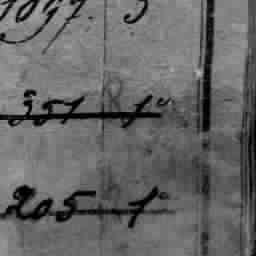 1097. 5
351 1º
205 1º